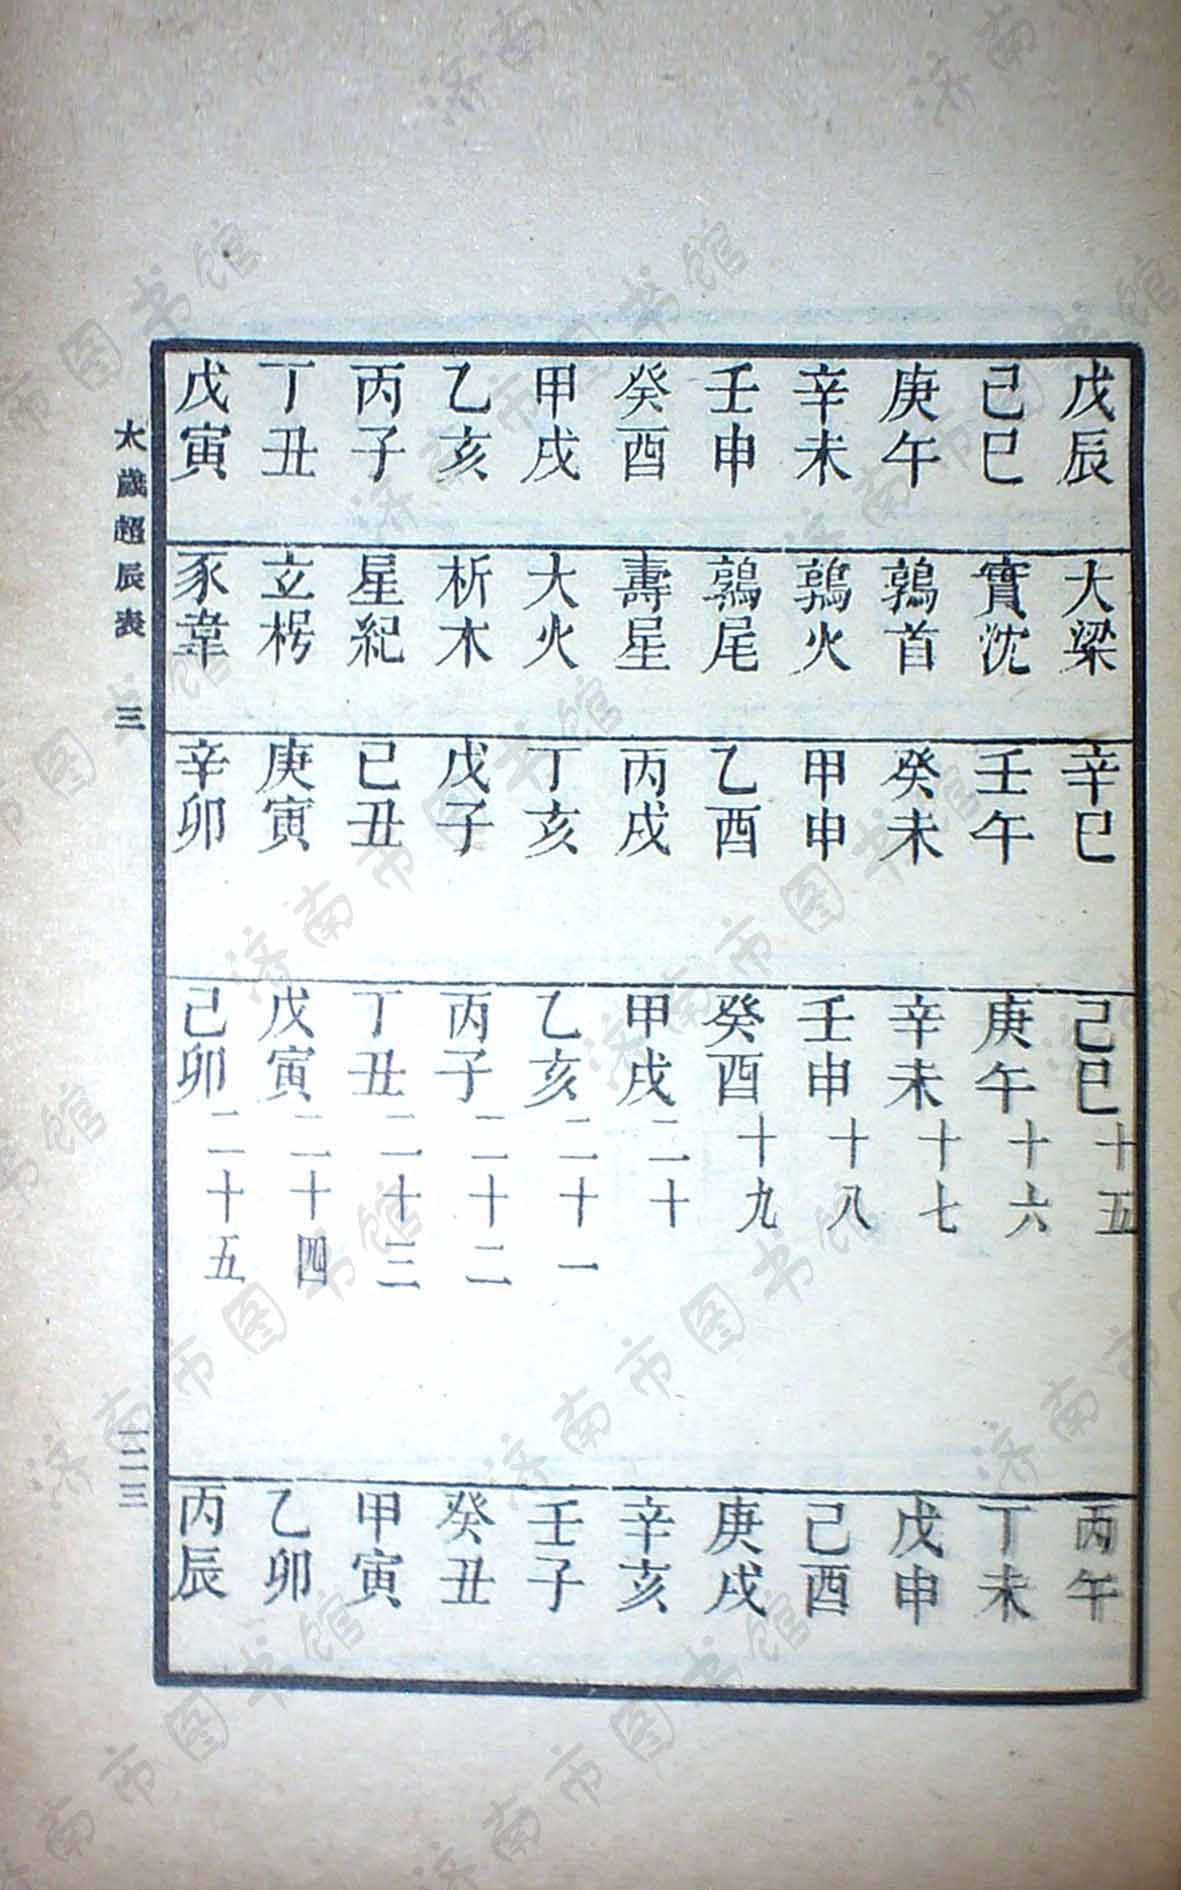 戊辰 大梁 辛巳 己巳十五 丙午
己巳 實沈 壬午 庚午十六 丁未
庚午 鶉首 癸未 辛未十七 戊申
辛未 鶉火 甲申 壬申十八 己酉
壬申 鶉尾 乙酉 癸酉十九 庚戌
癸酉 壽星 丙戌 甲戌二十 辛亥
甲戌 大火 丁亥 乙亥二十一 壬子
乙亥 析木 戊子 丙子二十二 癸丑
丙子 星紀 己丑 丁丑二十三 甲寅
丁丑 立枵 庚寅 戊寅二十四 乙卯
戊寅 豕韋 辛卯 己卯二十五 丙辰
太歲超辰表 三 一二三
济南市图书馆